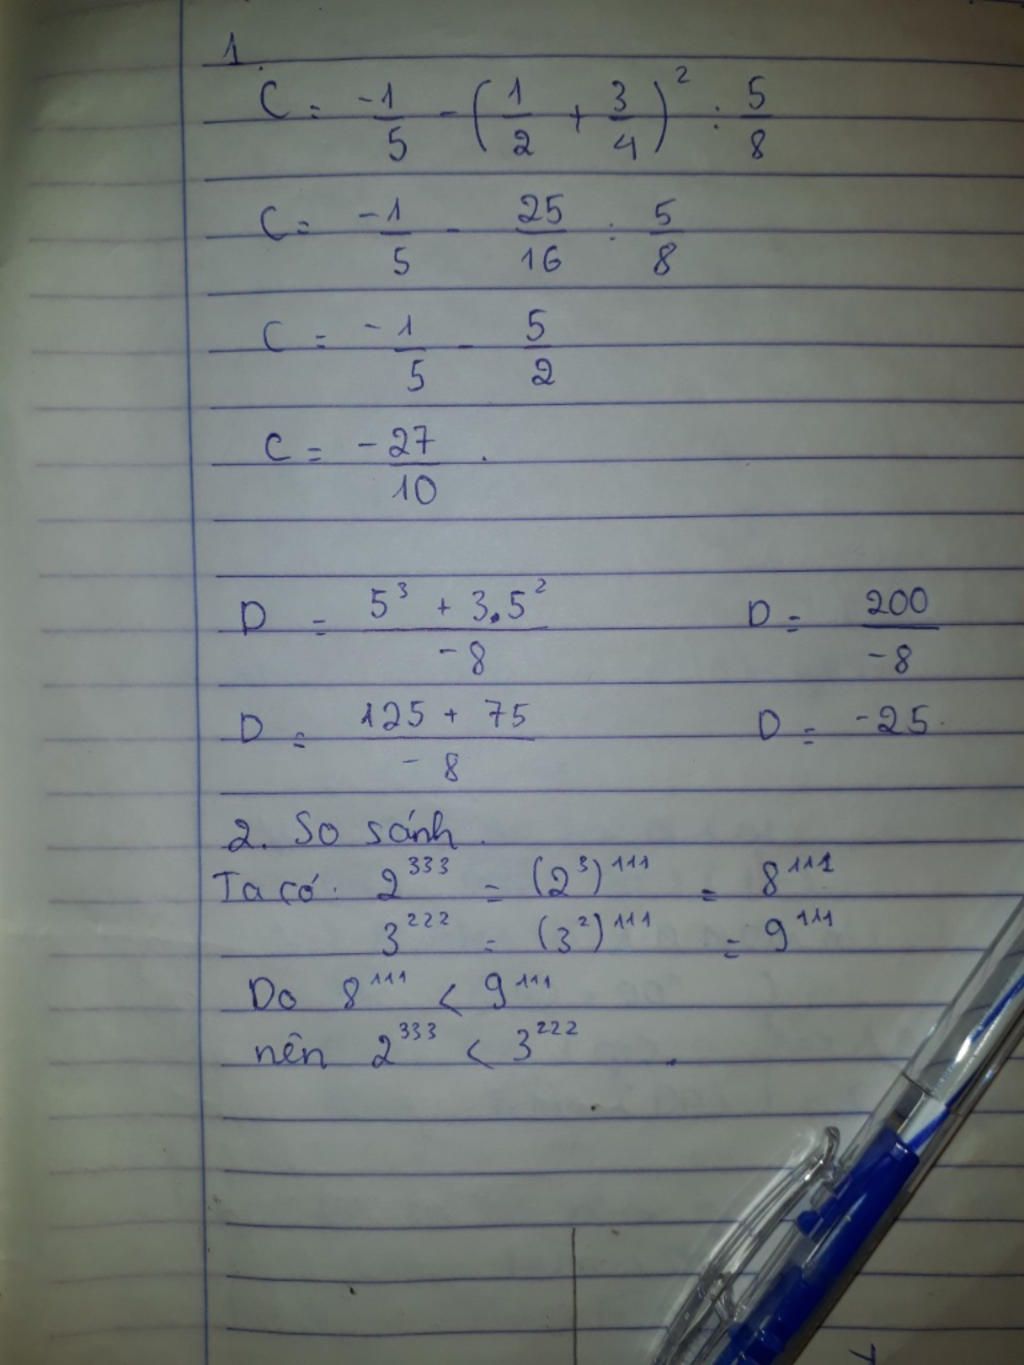 1.
C = -1/5 - (1/2 + 3/4)² : 5/8
C = -1/5 - 25/16 : 5/8
C = -1/5 - 5/2
C = -27/10 .
D = (5³ + 3.5²)/-8
D = (125 + 75)/-8
D = 200/-8
D = -25.
2. So sánh.
Ta có: 2³³³ = (2³)¹¹¹ = 8¹¹¹
3²²² = (3²)¹¹¹ = 9¹¹¹
Do 8¹¹¹ < 9¹¹¹
nên 2³³³ < 3²²² .